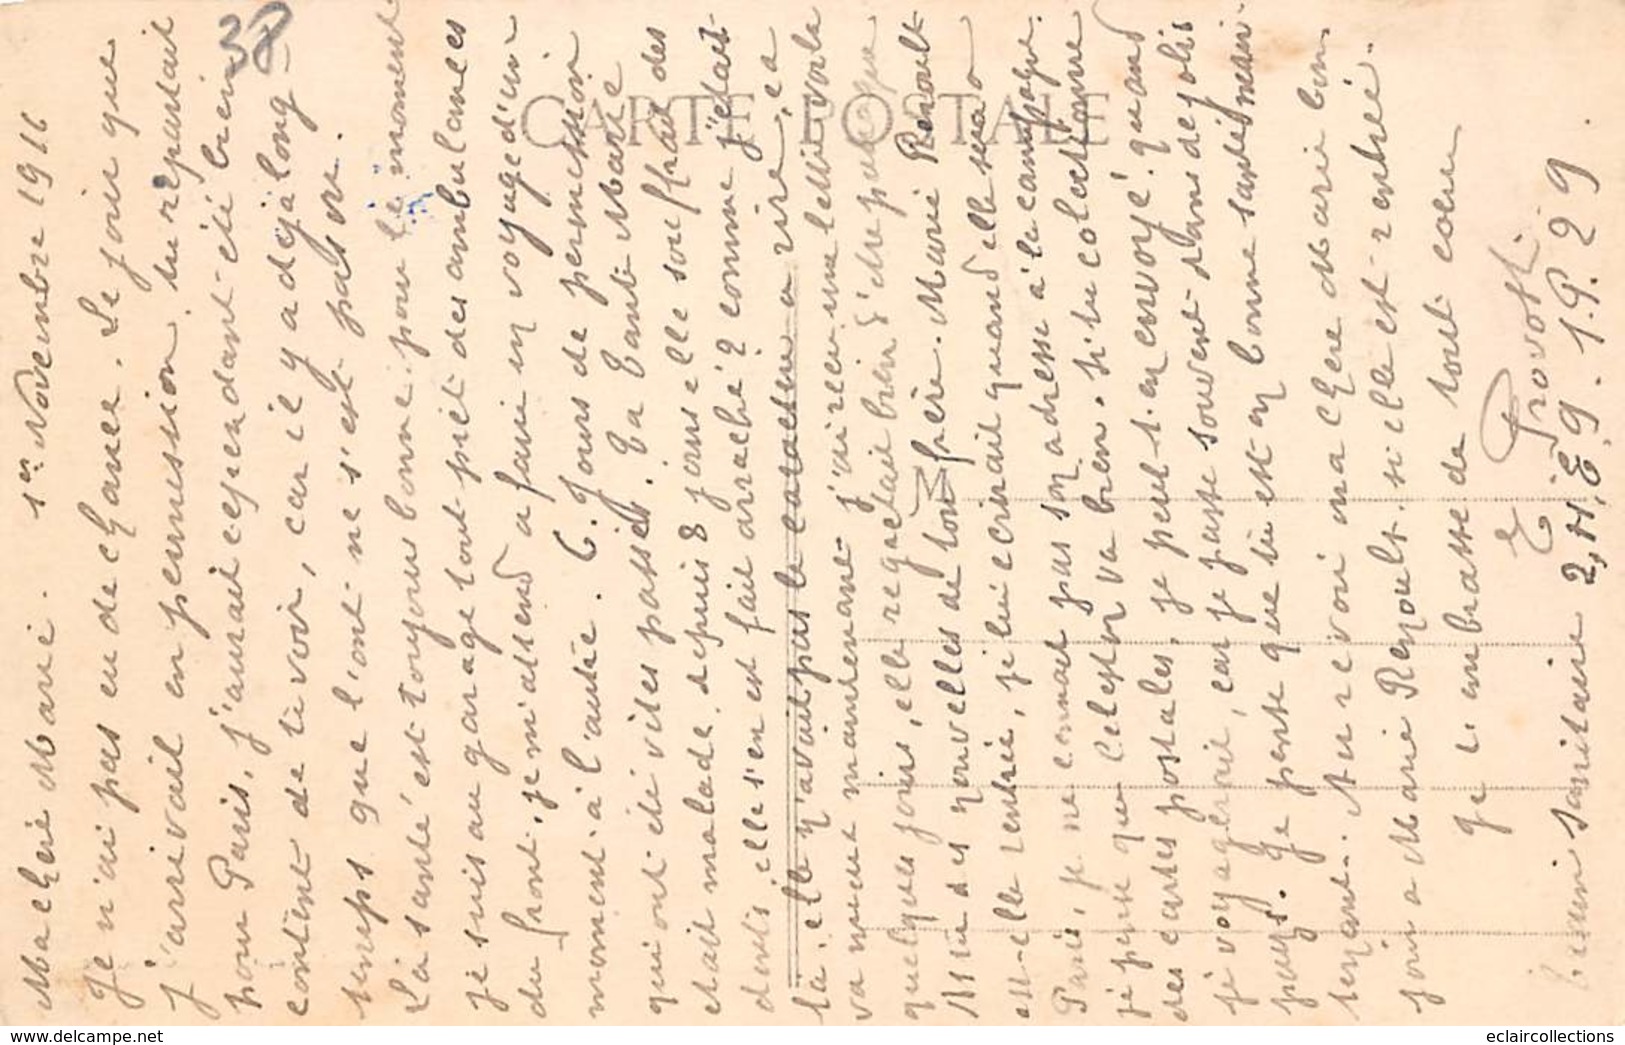 Ma chère Marie. 1er Novembre 1916
Je n'ai pas eu de chance. Le jour que
j'arrivait en permission, tu repartait
pour Paris, j'aurait cependant été bien
content de te voir, car il y a déjà long-
temps que l'ont ne s'est pas vu.
La santé est toujours bonne, pour le moment
je suis au garage tout prêt des ambulances
du front, je m'attend a faire un voyage d'un
moment à l'autre. 6. Jours de permission
qui ont été vites passés. Ta tante Marie
était malade depuis 8 jours elle souffrait des
dents, elle s'en est fait arraché 2 comme j'était
là, elle n'avait pas le caractère a rire, ça
va mieux maintenant j'ai reçu une lettre voila
quelques jours, elle regrettait bien d'être
As-tu des nouvelles de ton frère. Marie Renoult
est-elle rentrée, je lui écrirait quand elle sera a
Paris, je ne connait pas son adresse à la campagne.
je pense que Celestin va bien. Si tu colectionne
des cartes postales, je peut t'en envoyé quand
je voyagerait, car je passe souvent dans de jolis
pays. Je pense que tu est en bonne santé main-
tenant. Au revoir ma chère Marie bon
jour a Marie Renoult si elle est rentrée.
Je t'embrasse de tout cœur
E Provost
Section Sanitaire 2, H, E, 9. 19. 29.
38
CARTE POSTALE
M
eclaircollections